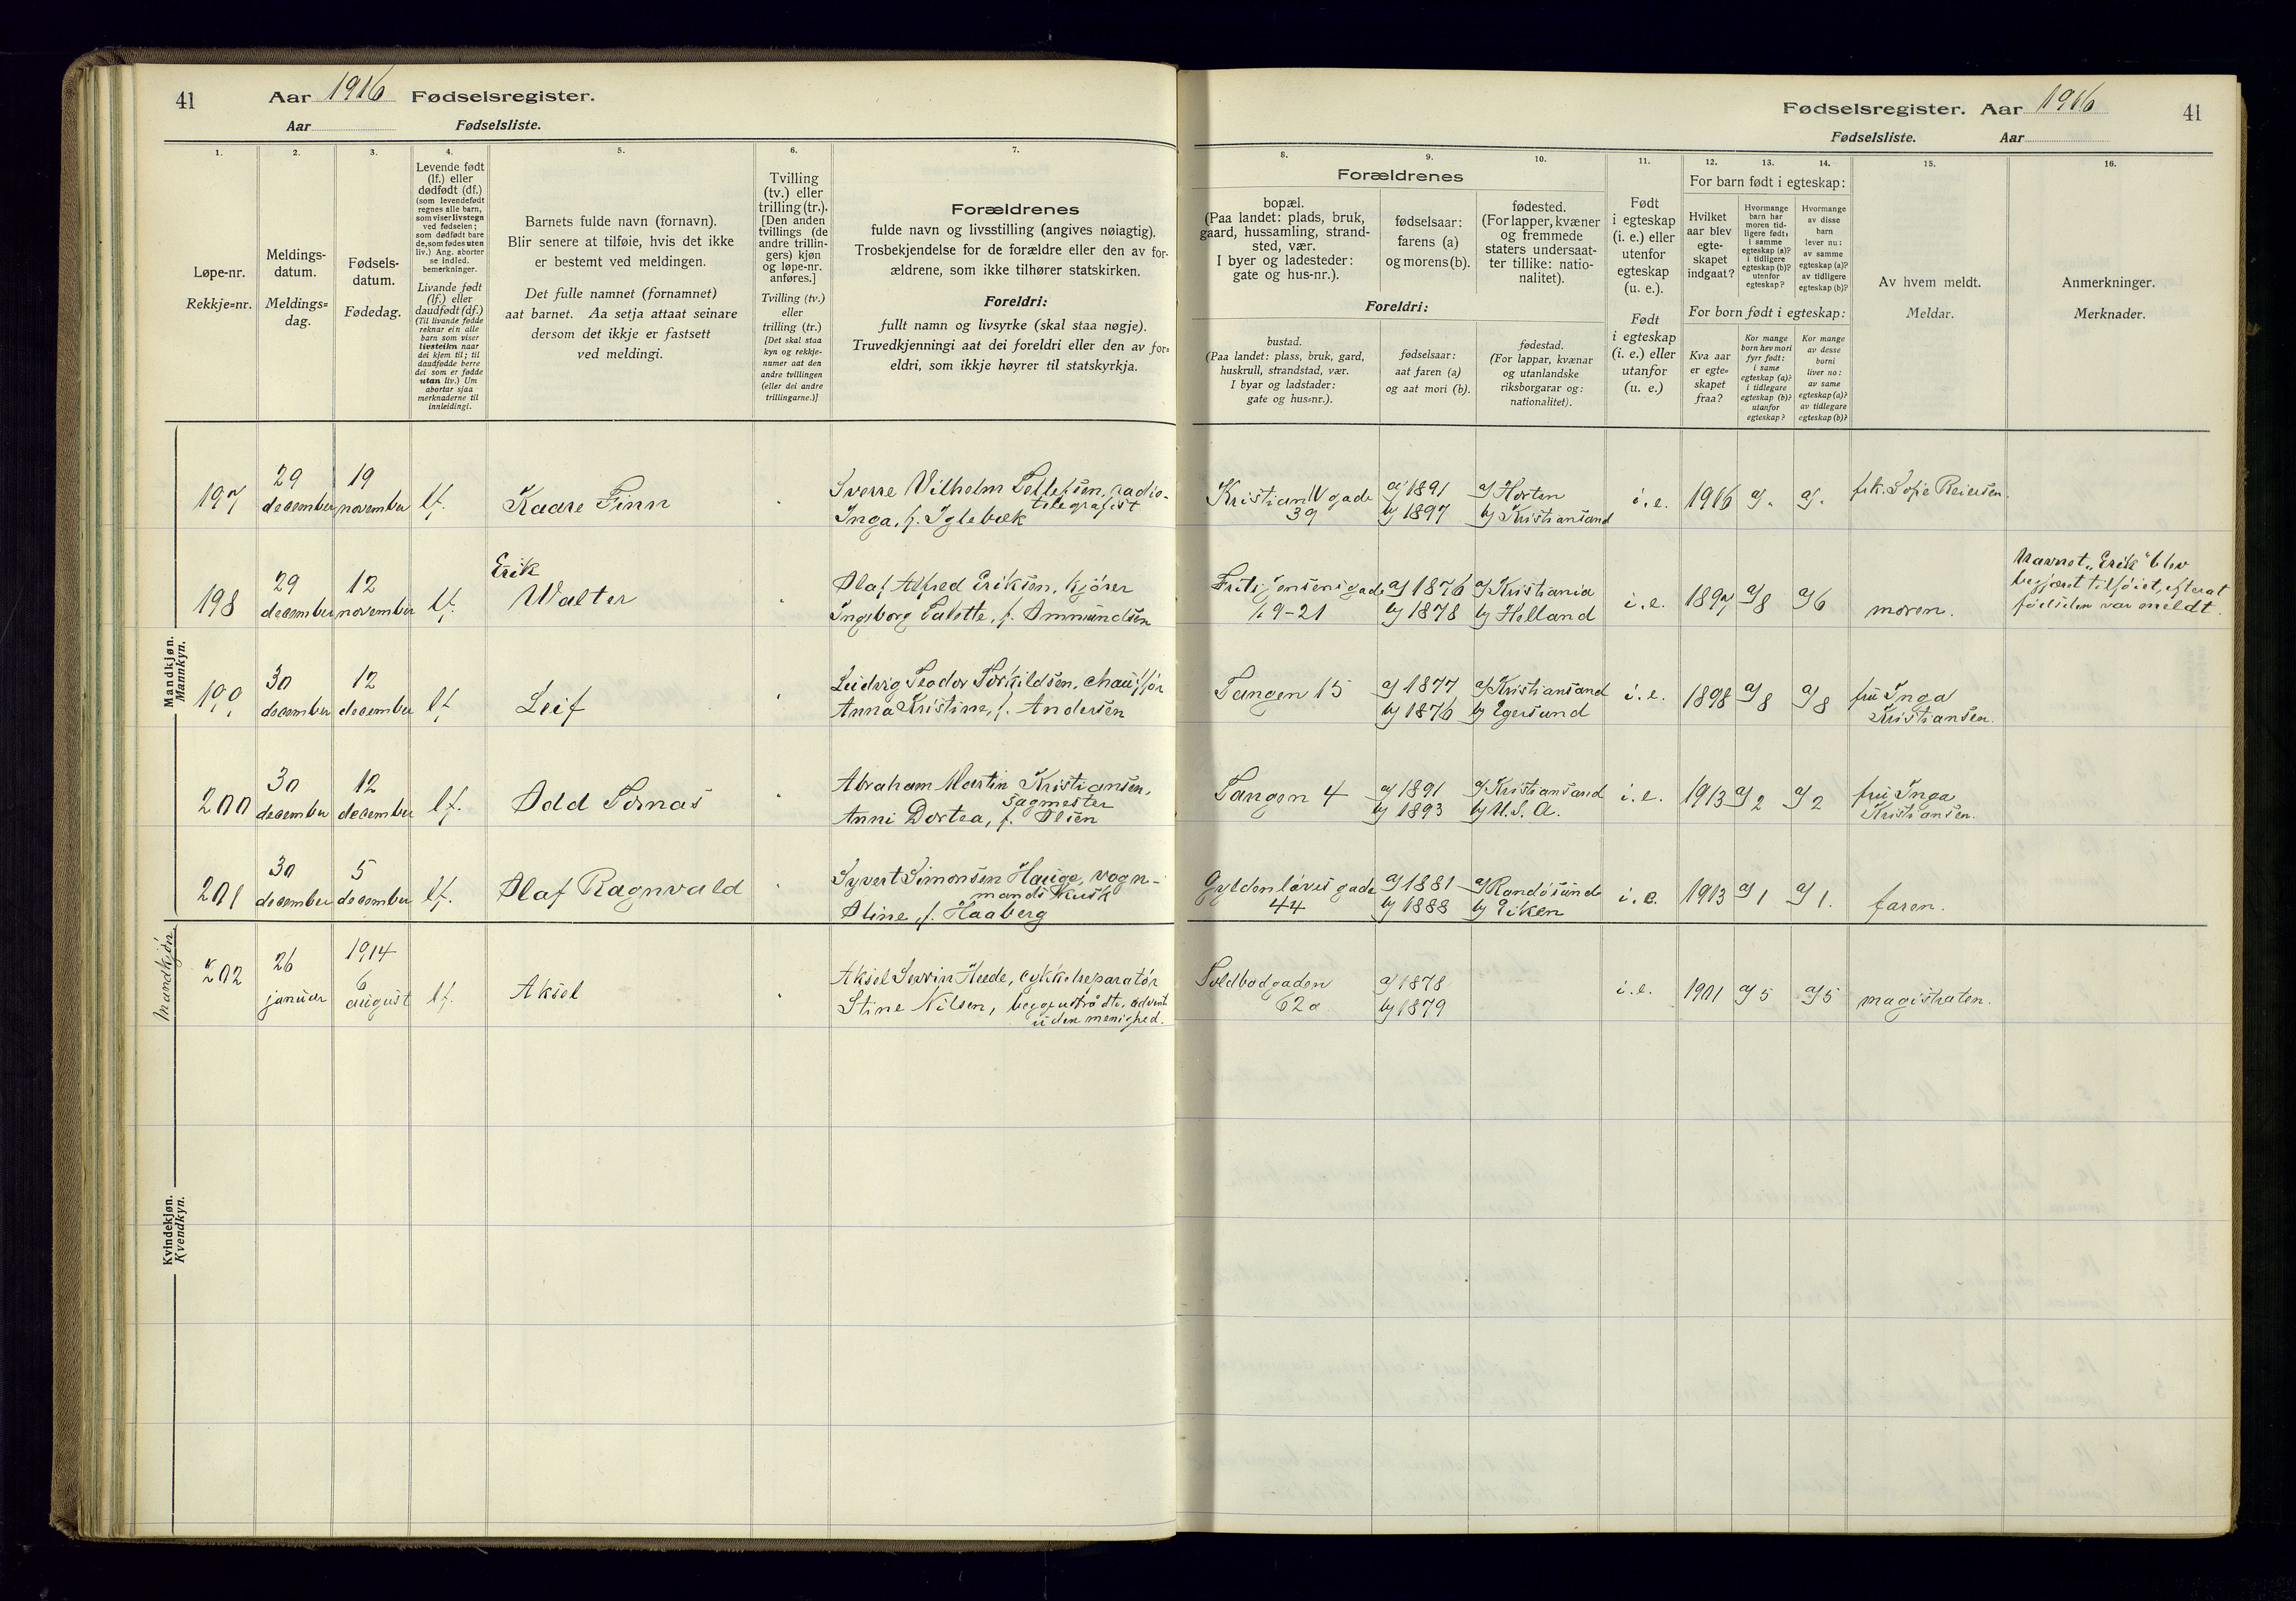 41
Aar 1916 Fødselsregister.
Aar Fødselsliste.
1.
Løpe-nr.
Rekkje=nr.
2.
Meldings-
datum.
Meldings=
dag.
3.
Fødsels-
datum.
Fødedag.
4.
Levende født
(lf.) eller
dødfødt (df.)
(som levendefødt
regnes alle barn,
som viser livstegn
ved fødselen;
som dødfødt bare
de, som fødes uten
liv.) Ang. aborter
se indled.
bemerkninger.
Livande født
(lf.) eller
daudfødt (df.)
(Til livande fødde
reknar ein alle
barn som viser
livsteikn naar
dei kjem til; til
daudfødde berre
dei som er fødde
utan liv.) Um
abortar sjaa
merknaderne til
innleidingi.
5.
Barnets fulde navn (fornavn).
Blir senere at tilføie, hvis det ikke
er bestemt ved meldingen.
Det fulle namnet (fornamnet)
aat barnet. Aa setja attaat seinare
dersom det ikkje er fastsett
ved meldingi.
6.
Tvilling
(tv.) eller
trilling (tr.).
[Den anden
tvillings (de
andre trillin-
gers) kjøn
og løpe-nr.
anføres.]
Tvilling (tv.)
eller
trilling (tr.)
[Det skal staa
kyn og rekkje-
numer aat den
andre tvillingen
(eller dei andre
trillingarne.)]
7.
Forældrenes
fulde navn og livsstilling (angives nøiagtig).
Trosbekjendelse for de forældre eller den av for-
ældrene, som ikke tilhører statskirken.
Foreldri:
fullt namn og livsyrke (skal staa nøgje).
Truvedkjenningi aat dei foreldri eller den av for=
eldri, som ikkje høyrer til statskyrkja.
Mandkjøn.
Mannkyn.
197
29
december
19
november
lf.
Kaare Finn
Sverre Vilhelm Tellefsen, radio-
telegrafist
Inga, f. Iglebæk
198
29
december
12
november
lf.
Erik
Walter
Olaf Alfred Eriksen, kjører
Ingeborg Talette, f. Ommundsen
199
30
december
12
december
lf.
Leif
Ludvig Teodor Torkildsen, chauffør
Anna Kristine, f. Andersen
200
30
december
12
december
lf.
Odd Tomas
Abraham Martin Kristiansen,
sagmester
Anni Dortea, f. Olsen
201
30
december
5
december
lf.
Olaf Ragnvald
Syvert Simonsen Hauge, vogn-
mandskusk
Oline, f. Haaberg
Mandkjøn
202
26
januar
1914
6
august
lf.
Aksel
Aksel Heede,
Stine Nilsen,
uden menighed.
Kvindekjøn.
Kvendkyn.
Fødselsregister. Aar 1916
41
Fødselsliste. Aar
8.
Forældrenes
bopæl.
(Paa landet: plads, bruk,
gaard, hussamling, strand-
sted, vær.
I byer og ladesteder:
gate og hus-nr.).
9.
fødselsaar:
farens (a)
og morens (b).
10.
fødested.
(For lapper, kvæner
og fremmede
staters undersaat-
ter tillike: natio-
nalitet).
Foreldri:
bustad.
(Paa landet: plass, bruk, gard,
huskrull, strandstad, vær.
I byar og ladstader:
gate og hus=nr.).
fødselsaar:
aat faren (a)
og aat mori (b).
fødestad.
(For lappar, kvænar
og utanlandske
riksborgarar og:
nationalitet).
11.
Født
i egteskap
(i. e.) eller
utenfor
egteskap
(u. e.).
Født
i egteskap
(i. e.) eller
utanfor
(u. e.)
12.
13.
14.
For barn født i egteskap:
Hvilket
aar blev
egte-
skapet
indgaat?
Hvormange
barn har
moren tid-
ligere født:
i samme
egteskap (a)?
i tidligere
egteskap (b)?
utenfor
egteskap?
Hvormange
av disse
barn
lever nu:
av samme
egteskap (a)?
av tidligere
egteskap (b)?
For born født i egteskap:
Kva aar
er egte=
skapet
fraa?
Kor mange
born hev mori
fyrr født:
i same
egteskap (a)?
i tidlegare
egteskap (b)?
utanfor
egteskap?
Kor mange
av desse
borni
liver no:
av same
egteskap (a)?
av tidlegare
egteskap (b)?
15.
Av hvem meldt.
Meldar.
16.
Anmerkninger.
Merknader.
Kristian IV gade
39
a) 1891
b) 1897
a) Horten
b) Kristiansand
i. e.
1916
a) .
a) .
frk. Sofie Reiersen.
Frits Jensensgade
19-21
a) 1876
b) 1878
a) Kristiania
b) Helland
i. e.
1897
a) 8
a) 6
moren.
Navnet "Erik" blev
begjært tilføiet, efterat
fødslen var meldt.
Tangen 15
a) 1877
b) 1876
a) Kristiansand
b) Egersund
i. e.
1898
a) 8
a) 8
fru Inga
Kristiansen.
Tangen 4
a) 1891
b) 1893
a) Kristiansand
b) U. S. A.
i. e.
1913
a) 2
a) 2
fru Inga
Kristiansen.
Gyldenløvesgade
44
a) 1881
b) 1888
a) Randøsund
b) Eiken
i. e.
1913
a) 1
a) 1.
faren.
Toldbodgaden
62a
a) 1878
b) 1879
i. e.
1901
a) 5
a) 5
magistraten.